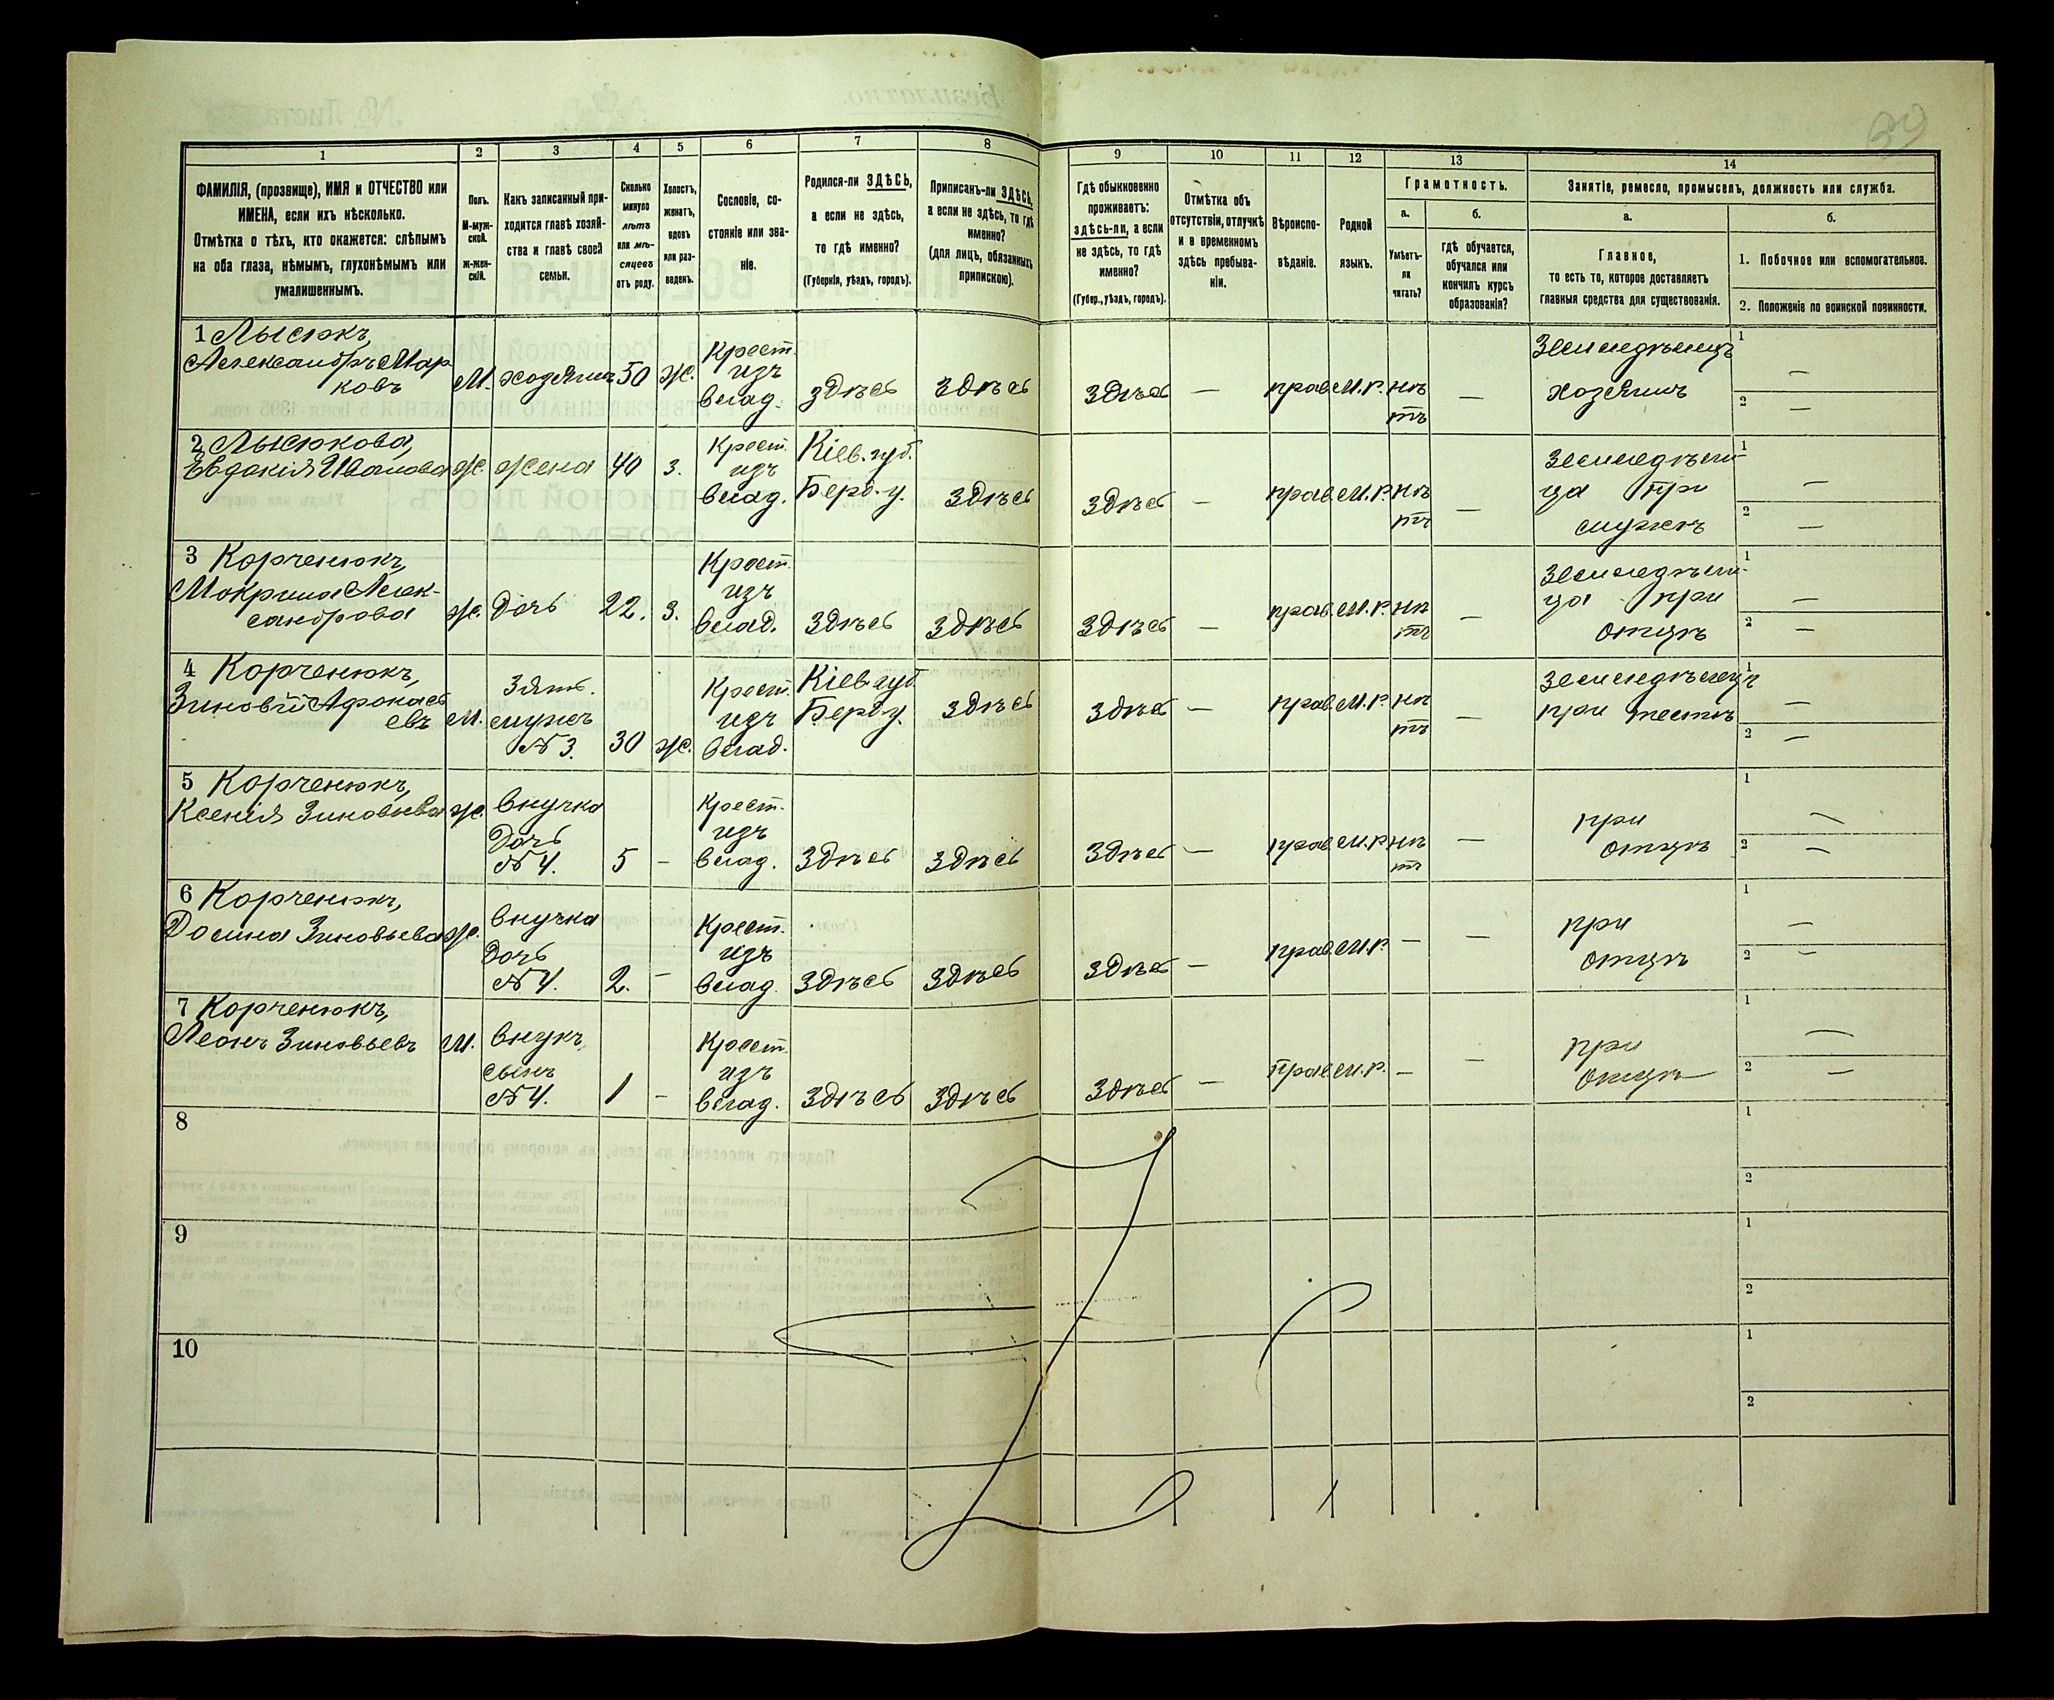 39
1 2 3 4 5 6 7 8 9 10 11 12 13 14
ФАМИЛІЯ, (прозвище), ИМЯ и ОТЧЕСТВО или
ИМЕНА, если ихъ нѣсколько.
Отмѣтка о тѣхъ, кто окажется: слѣпымъ
на оба глаза, нѣмымъ, глухонѣмымъ или
умалишеннымъ.
Полъ.
М-муж-
ской.
ж-жен-
скій.
Какъ записанный при-
ходится главѣ хозяй-
ства и главѣ своей
семьи.
Сколько
минуло
лѣтъ
или мѣ-
сяцевъ
отъ роду.
Холостъ,
женатъ,
вдовъ
или раз-
веденъ.
Сословіе, со-
стояніе или зва-
ніе.
Родился-ли ЗДѢСЬ,
а если не здѣсь,
то гдѣ именно?
(Губернія, уѣздъ, городъ).
Приписанъ-ли ЗДѢСЬ,
а если не здѣсь, то гдѣ
именно?
(для лицъ, обязанныхъ
припискою).
Гдѣ обыкновенно
проживаетъ:
здѣсь-ли, а если
не здѣсь, то гдѣ
именно?
(Губер., уѣздъ, городъ).
Отмѣтка объ
отсутствіи, отлучкѣ
и о временномъ
здѣсь пребыва-
ніи.
Вѣроиспо-
вѣданіе.
Родной
языкъ.
Грамотность.
а.
Умѣетъ-
ли
читать?
б.
гдѣ обучается,
обучался или
кончилъ курсъ
образованія?
Занятіе, ремесло, промыселъ, должность или служба.
а.
Главное,
то есть то, которое доставляетъ
главныя средства для существованія.
б.
1. Побочное или вспомогательное.
2. Положеніе по воинской повинности.
1 Лысюкъ,
Александръ Мар
ковъ
М. хозяинъ 50 ж.
Крест.
изъ
влад.
здѣсь здѣсь здѣсь — прав. м.р. нѣ
тъ
—
Земледѣлецъ
хозяинъ
1 —
2 —
2 Лысюкова,
Евдокія Иванова
ж. жена 40 з.
Крест.
изъ
влад.
Кіев. губ.
Берд. у.
здѣсь здѣсь — прав. м.р. нѣ
тъ
—
Земледѣли-
ца при
мужѣ
1 —
2 —
3 Корченюкъ,
Мокрина Алек-
сандрова
ж. дочь 22. з.
Крест.
изъ
влад.
здѣсь здѣсь здѣсь — прав. м.р. нѣ
тъ
—
Земледѣли-
ца при
отцѣ
1 —
2 —
4 Корченюкъ,
Зиновій Афонась
евъ
М.
Зять.
мужъ
№ 3.
30 ж.
Крест.
изъ
влад.
Кіев. губ.
Берд. у.
здѣсь здѣсь — прав. м.р. нѣ
тъ
—
Земледѣлецъ
при тестѣ
1 —
2 —
5 Корченюкъ,
Ксенія Зиновьева
ж.
внучка
дочь
№ 4.
5 —
Крест.
изъ
влад.
здѣсь здѣсь здѣсь — прав. м.р. нѣ
тъ
—
при
отцѣ
1 —
2 —
6 Корченюкъ,
Домна Зиновьева
ж.
внучка
дочь
№ 4.
2. —
Крест.
изъ
влад.
здѣсь здѣсь здѣсь — прав. м.р. — —
при
отцѣ
1 —
2 —
7 Корченюкъ,
Леонъ Зиновьевъ
М.
внукъ,
сынъ
№ 4.
1 —
Крест.
изъ
влад.
здѣсь здѣсь здѣсь — прав. м.р. — —
при
отцѣ
1 —
2 —
8
1
2
9
1
2
10
1
2